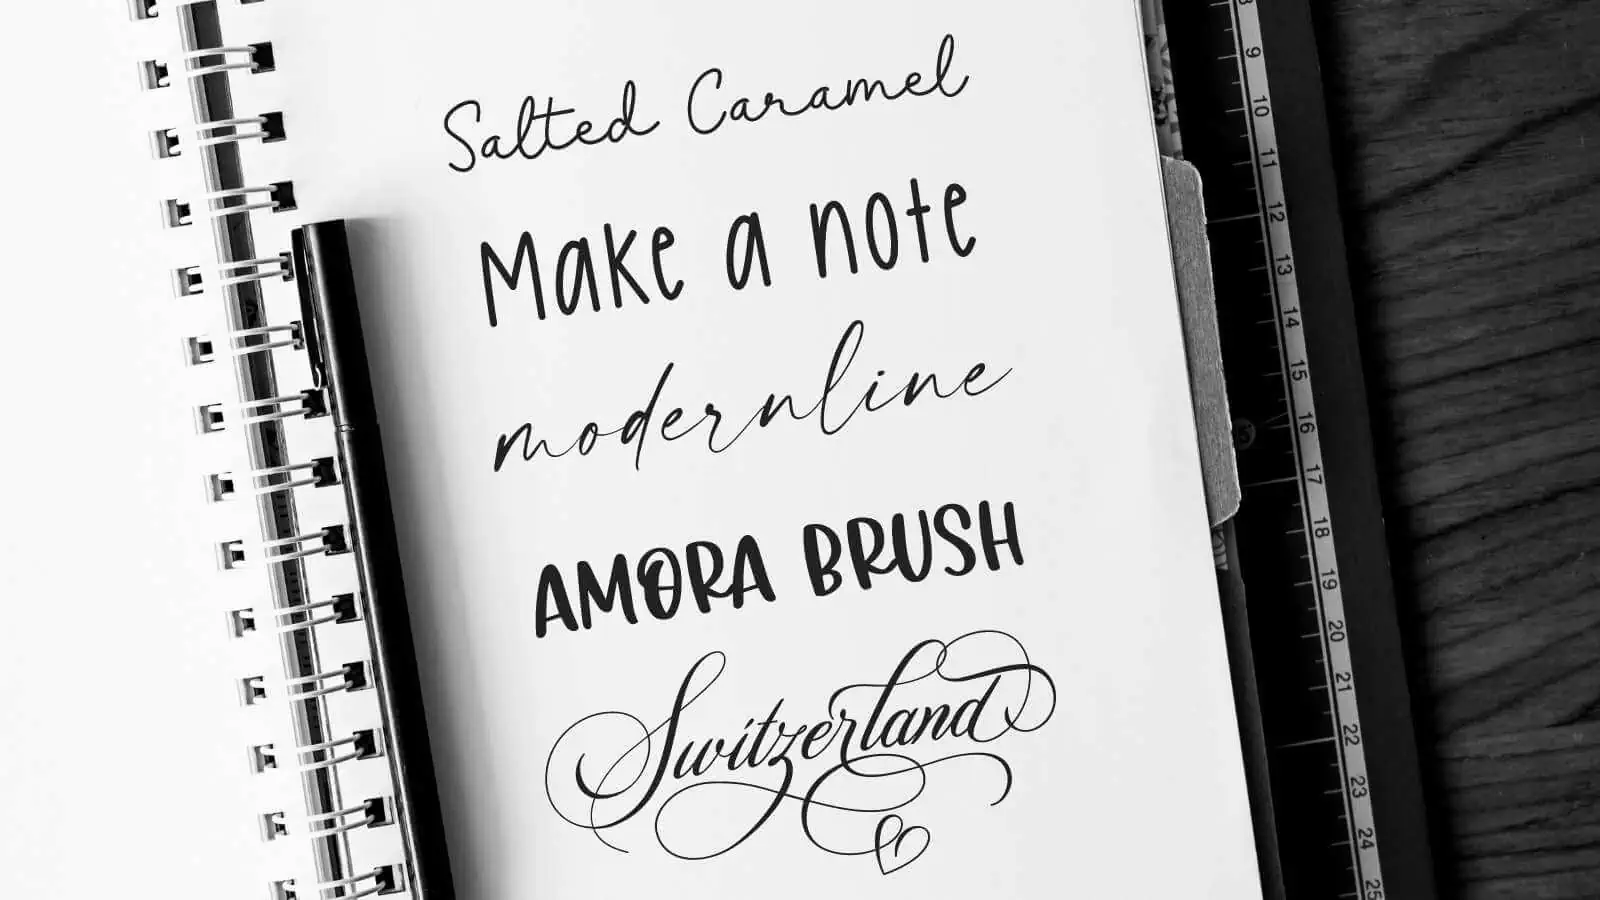 Salted Caramel
Make a note
modernline
AMORA BRUSH
Switzerland
9
10
11
12
13
14
15
16
17
18
19
20
21
22
23
24
25